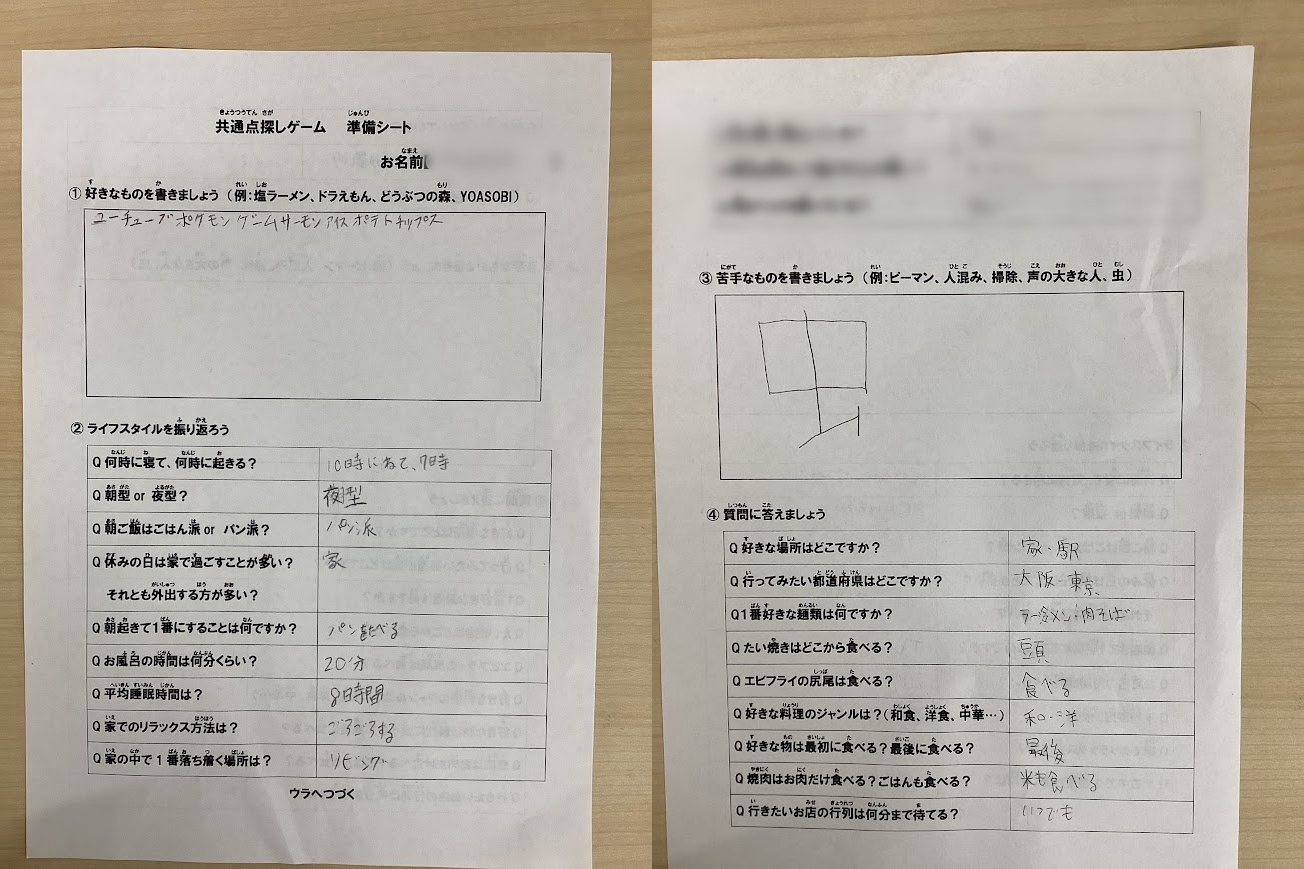 共通点探しゲーム 準備シート
お名前
① 好きなものを書きましょう（例：塩ラーメン、ドラえもん、どうぶつの森、YOASOBI）
ユーチューブ ポケモン ゲーム サーモン アイス ポテトチップス
② ライフスタイルを振り返ろう
Q 何時に寝て、何時に起きる？ 10時にねて、7時
Q 朝型 or 夜型？ 夜型
Q 朝ご飯はごはん派 or パン派？ パン派
Q 休みの日は家で過ごすことが多い？ 家
それとも外出する方が多い？
Q 朝起きて1番にすることは何ですか？ パンを食べる
Q お風呂の時間は何分くらい？ 20分
Q 平均睡眠時間は？ 8日時間
Q 家でのリラックス方法は？ ごろごろする
Q 家の中で1番落ち着く場所は？ リビング
ウラへつづく
③ 苦手なものを書きましょう（例：ピーマン、人混み、掃除、声の大きな人、虫）
虫
④ 質問に答えましょう
Q 好きな場所はどこですか？ 家・駅
Q 行ってみたい都道府県はどこですか？ 大阪 東京
Q1番好きな麺類は何ですか？ 肉そば
Q たい焼きはどこから食べる？ 頭
Q エビフライの尻尾は食べる？ 食べる
Q 好きな料理のジャンルは？（和食、洋食、中華…） 和・洋
Q 好きな物は最初に食べる？最後に食べる？ 最後
Q 焼肉はお肉だけ食べる？ごはんも食べる？ 米も食べる
Q 行きたいお店の行列は何分まで待てる？ いつでも